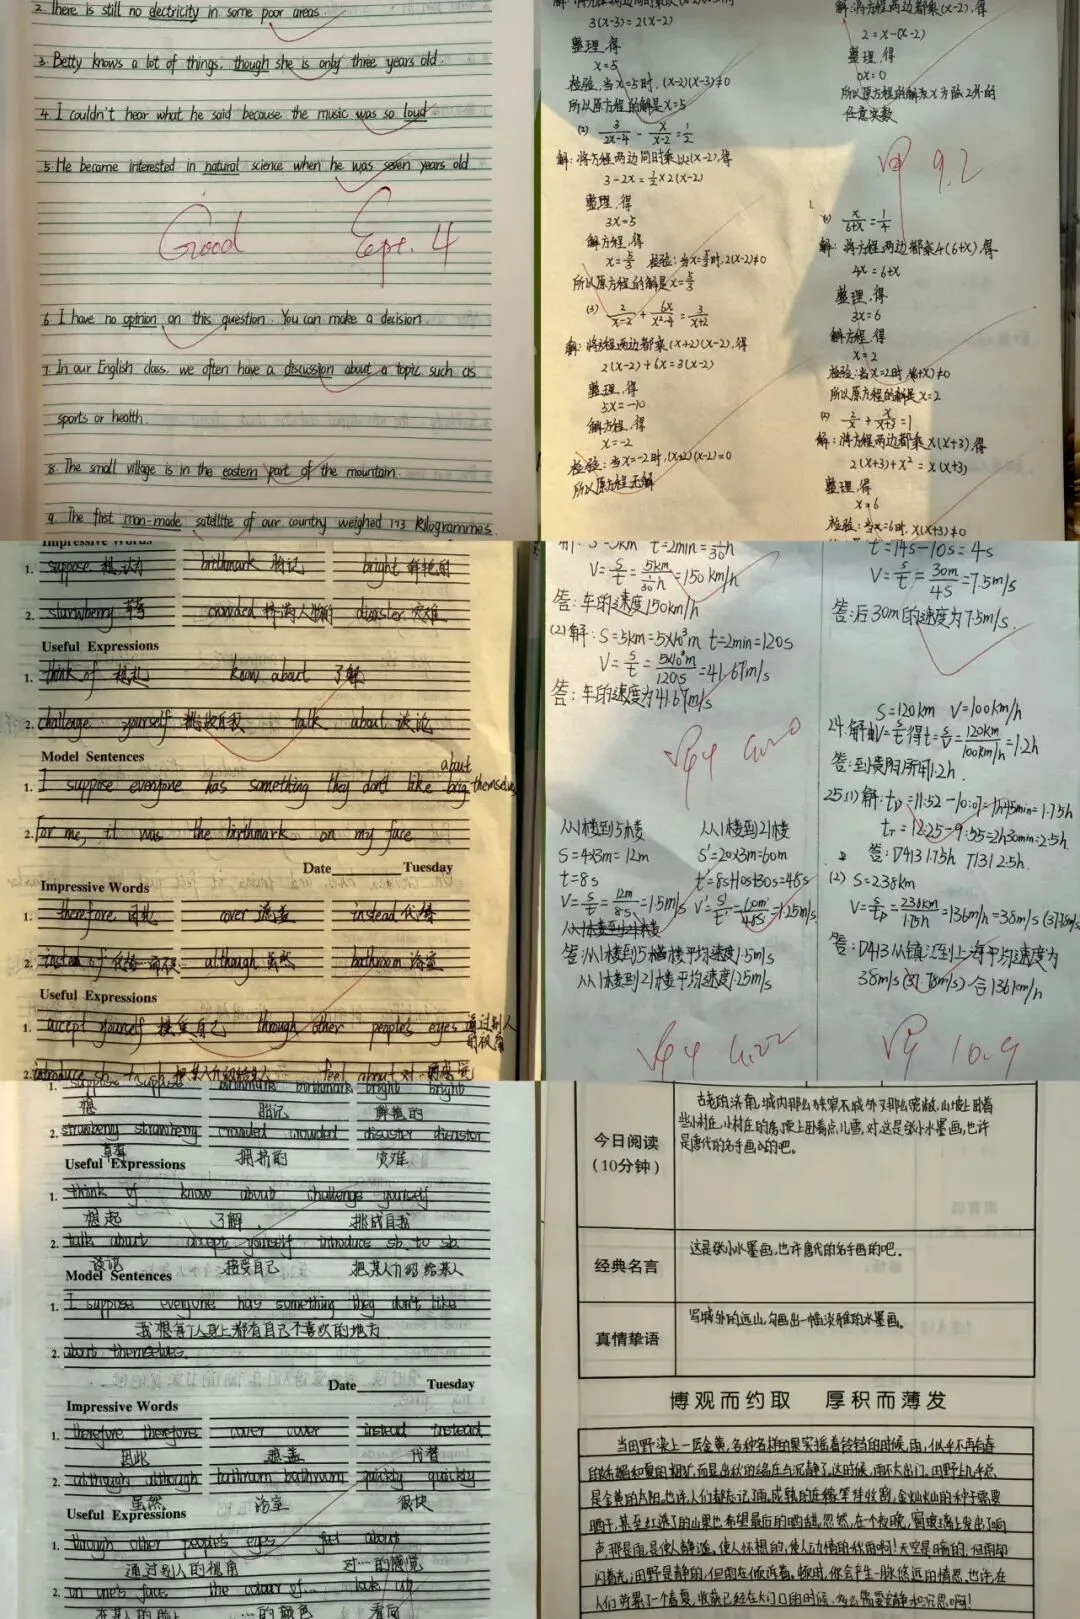 2. There is still no electricity in some poor areas.
3. Betty knows a lot of things, though she is only three years old.
4. I couldn't hear what he said because the music was so loud
5. He became interested in natural science when he was seven years old
Good
Sept. 4
6. I have no opinion on this question. You can make a decision.
7. In our English class, we often have a discussion about a topic such as
sports or health.
8. The small village is in the eastern part of the mountain.
9. The first man-made satellite of our country weighed 173 kilogrammes.
3(x-3)=2(x-2)
整理,得
x=5
检验,当x=5时,(x-2)(x-3)≠0
所以原方程的解是x=5
(2) 3/(2x-4) - x/(x-2) = 1/2
解:将方程两边同时乘以2(x-2),得
3-2x=1/2×2(x-2)
整理,得
3x=5
解方程,得
x=5/3 检验:当x=5/3时,2(x-2)≠0
所以原方程的解是x=5/3
(3) 2/(x-2) + 6x/(x²-4) = 3/(x+2)
解:将方程两边都乘(x+2)(x-2),得
2(x-2)+6x=3(x-2)
整理,得
5x=-10
解方程,得
x=-2
检验:当x=-2时,(x+2)(x-2)=0
所以原方程无解
解:将方程两边都乘(x-2),得
2=x-(x-2)
整理,得
0x=0
所以原方程的解为x为除2外的
任意实数
9.2
x/(6+x)=1/4
解:将方程两边都乘4(6+x),得
4x=6+x
整理,得
3x=6
解方程,得
x=2
所以原方程的解是x=2
(2) 2/x + x/(x+3) = 1
解:将方程两边都乘x(x+3),得
2(x+3)+x²=x(x+3)
整理,得
x=6
检验:当x=6时,x(x+3)≠0
Impressive Words
1. suppose 想,认为 brithmark 胎记 bright 鲜艳的
2. starwberry 草莓 crowded 挤满人的 disaster 灾难
Useful Expressions
1. think of 想起 know about 了解
2. challenge yourself 挑战自我 talk about 谈论
Model Sentences
about
1. I suppose everyone has something they don't like themselves
2. For me, it was the birthmark on my face
Date Tuesday
Impressive Words
1. therefore 因此 cover 遮盖 instead 代替
2. instead of although 虽然 bathroom 浴室
Useful Expressions
1. accept yourself 接受自己 through other people's eyes 通过别人
的视角
2. introduce sb. to sb. 把某人介绍给某人 feel about
t=2min=1/30h
V=s/t=5km/(1/30h)=150km/h
答:车的速度150km/h
(2)解:S=5km=5×10³m t=2min=120s
V=s/t=5×10³m/120s=41.67m/s
答:车的速度为41.67m/s
从1楼到5楼 从1楼到21楼
S=4×3m=12m S'=20×3m=60m
t=8s t'=8s+10s+30s=48s
V=s/t=12m/8s=1.5m/s V'=s'/t'=60m/48s=1.25m/s
答:从1楼到5楼平均速度1.5m/s
从1楼到21楼平均速度1.25m/s
t=14s-10s=4s
V=s/t=30m/4s=7.5m/s
答:后30m的速度为7.5m/s.
S=120km V=100km/h
24.解:由V=s/t得t=s/v=120km/100km/h=1.2h
答:到贵阳所用1.2h.
25.(1)解:tD=11:52-10:07=1h45min=1.75h
tT=12:25-9:55=2h30min=2.5h.
答:D413 1.75h T131 2.5h.
(2) S=238km
V=s/tD=238km/1.75h=136km/h=38m/s
答:D413从镇江到上海平均速度为
38m/s(37.78m/s)合136km/h
10.9
1. suppose suppose birthmark birthmark bright bright
想 胎记 鲜艳的
2. strawberry strawberry crowded crowded disaster disaster
草莓 拥挤的 灾难
Useful Expressions
1. think of know about challenge yourself
想起 了解 挑战自我
2. talk about accept yourself introduce sb. to sb.
谈论 接受自己 把某人介绍给某人
Model Sentences
1. I suppose everyone has something they don't like
我想每个人身上都有自己不喜欢的地方
2. about themselves.
Date Tuesday
Impressive Words
1. therefore therefore cover cover instead instead
因此 遮盖 代替
2. although although bathroom bathroom quickly quickly
虽然 浴室 很快
Useful Expressions
1. through other people's eyes feel about
通过别人的视角 对…的感觉
2. on one's face the colour of... look up
在某人的脸上 …的颜色 看向
今日阅读
(10分钟)
古老的济南,城内那么狭窄,城外又那么宽敞,山坡上卧着
些小村庄,小村庄的房顶上卧着点儿雪,对,这是张小水墨画,也许
是唐代的名手画的吧。
经典名言
这是张小水墨画,也许唐代的名手画的吧.
真情挚语
写城外的远山,勾画出一幅淡雅的水墨画。
博观而约取 厚积而薄发
当田野染上一层金黄,各种各样的果实摇着铃铛的时候,雨,似乎不再有春
的娇媚和夏的粗犷,而显出秋的端庄与沉静了。这时候,雨不大出门。田野上几乎总
是金黄的太阳。也许,人们都忘记了雨。成熟的庄稼等待收割,金灿灿的种子需要
晒干,甚至红透了的山果也希望最后的晒甜。忽然,在一个夜晚,窗玻璃上发出了响
声,那是雨,是使人静谧、使人怀想、使人动情的秋雨啊!天空是暗的,但雨却
闪着光;田野是静的,但雨在倾诉着。顿时,你会产生一脉悠远的情思。也许,在
人们劳累了一个春夏,收获已经在大门口的时候,多么需要安静和沉思啊!